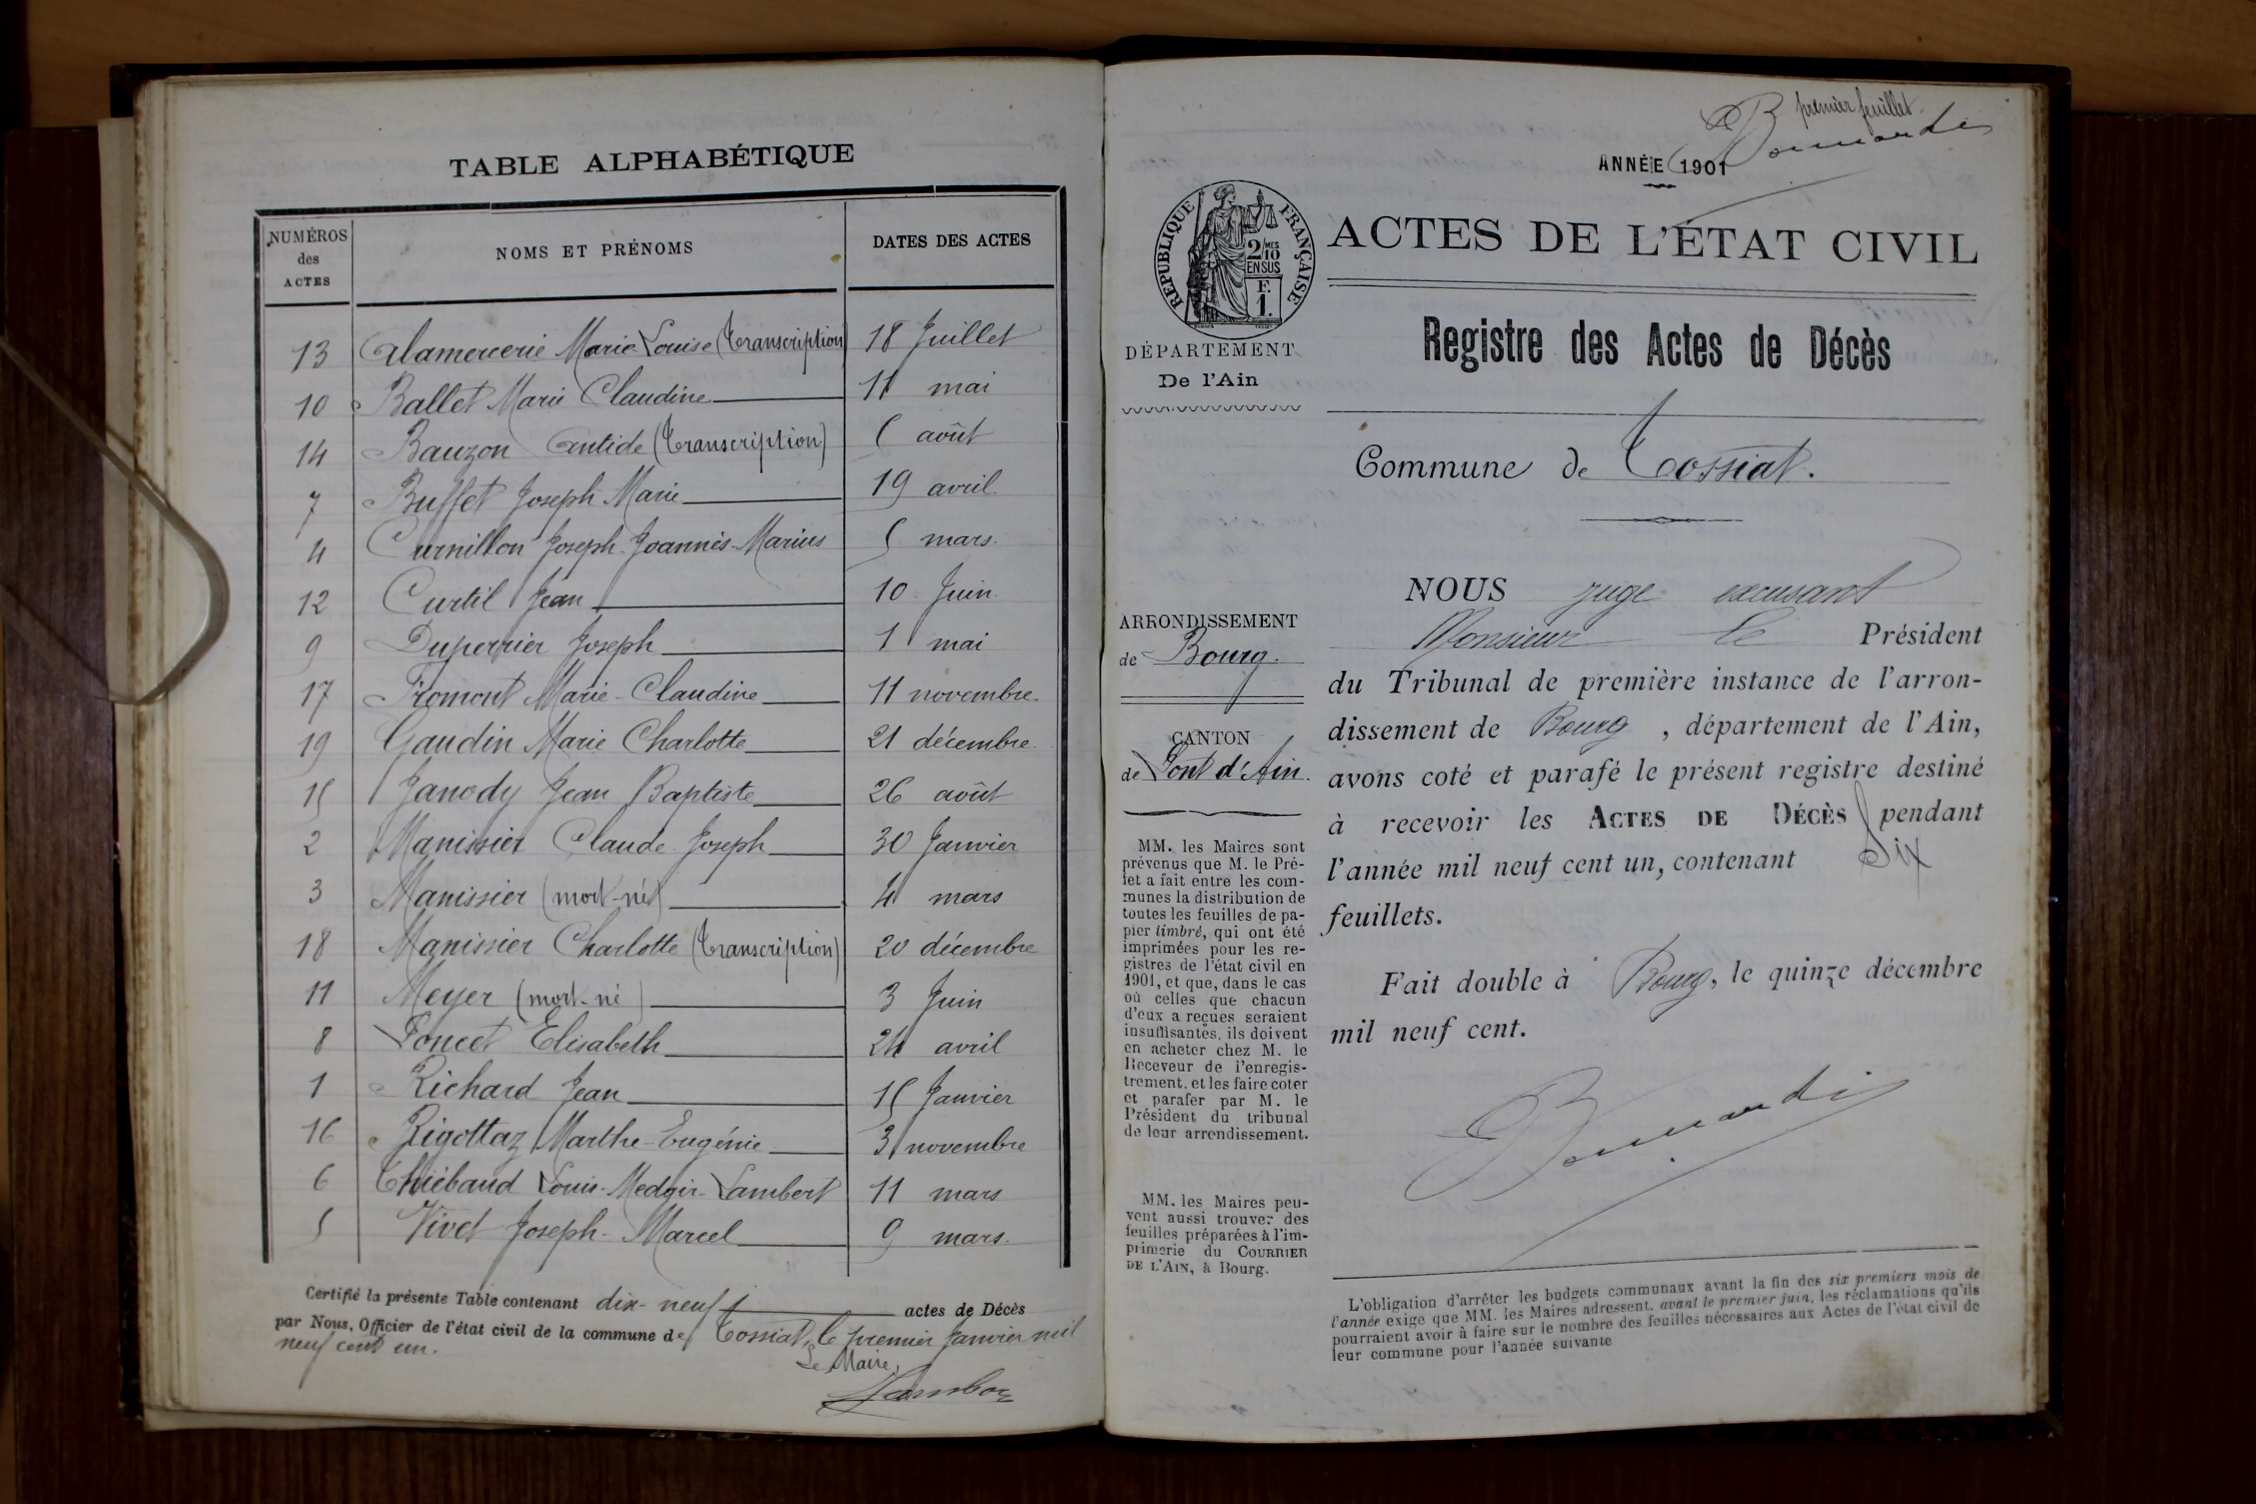 TABLE ALPHABÉTIQUE
NUMÉROS des ACTES | NOMS ET PRÉNOMS | DATES DES ACTES
13 Alamercerie Marie Louise (Transcription) 18 Juillet
10 Ballet Marie Claudine 11 mai
14 Bauzon Antide (Transcription) 6 août
7 Buffet Joseph Marie 19 avril
4 Curnillon Joseph Joannès Marius 5 mars.
12 Curtil Jean 10 Juin.
9 Duperrier Joseph 1 mai
17 Fromont Marie-Claudine 11 novembre.
19 Gaudin Marie Charlotte 21 décembre.
15 Janody Jean Baptiste 26 août
2 Manissier Claude Joseph 30 Janvier
3 Manissier (mort-né) 4 mars
18 Manissier Charlotte (Transcription) 20 décembre
11 Meyer (mort-né) 3 Juin
8 Poncet Elisabeth 24 avril
1 Richard Jean 15 Janvier
16 Rigottaz Marthe-Eugénie 3 novembre
6 Thiébaud Louis-Medgir-Lambert 11 mars
5 Vivet Joseph-Marcel 9 mars.
Certifié la présente Table contenant dix-neuf actes de Décès
par Nous, Officier de l'état civil de la commune de Tossiat, le premier Janvier mil
neuf cent un.
Le Maire,
premier feuillet.
ANNÉE 1901
RÉPUBLIQUE FRANÇAISE
2/10 MES
EN SUS
F.
1.
ACTES DE L'ÉTAT CIVIL
DÉPARTEMENT
De l'Ain
Registre des Actes de Décès
Commune de Tossiat.
ARRONDISSEMENT
de Bourg.
CANTON
de Pont d'Ain.
MM. les Maires sont
prévenus que M. le Pré-
fet a fait entre les com-
munes la distribution de
toutes les feuilles de pa-
pier timbré, qui ont été
imprimées pour les re-
gistres de l'état civil en
1901, et que, dans le cas
où celles que chacun
d'eux a reçues seraient
insuffisantes, ils doivent
en acheter chez M. le
Receveur de l'enregis-
trement, et les faire coter
et parafer par M. le
Président du tribunal
de leur arrondissement.
MM. les Maires peu-
vent aussi trouver des
feuilles préparées à l'im-
primerie du COURRIER
DE L'AIN, à Bourg.
NOUS juge excusant
Monsieur Le Président
du Tribunal de première instance de l'arron-
dissement de Bourg, département de l'Ain,
avons coté et parafé le présent registre destiné
à recevoir les ACTES DE DÉCÈS pendant
l'année mil neuf cent un, contenant Six
feuillets.
Fait double à Bourg, le quinze décembre
mil neuf cent.
L'obligation d'arrêter les budgets communaux avant la fin des six premiers mois de
l'année exige que MM. les Maires adressent, avant le premier juin, les réclamations qu'ils
pourraient avoir à faire sur le nombre des feuilles nécessaires aux Actes de l'état civil de
leur commune pour l'année suivante